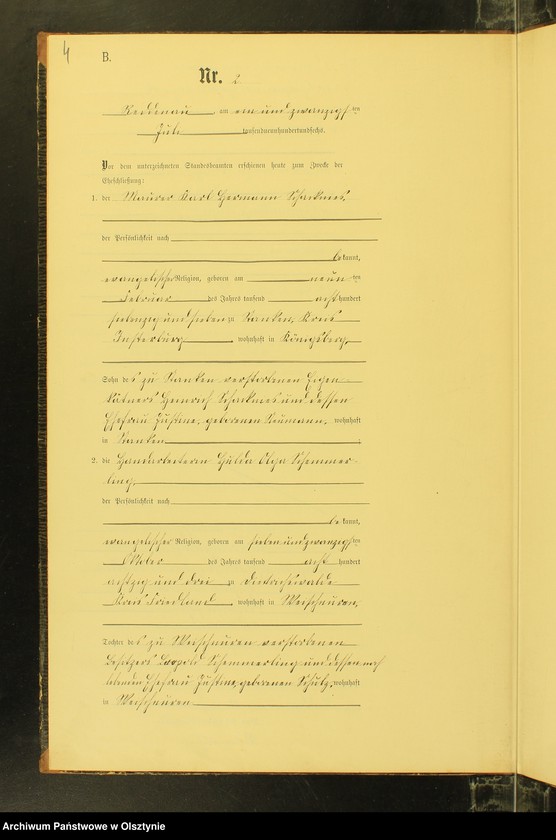 4
B.
Nr. 2
Reddenau, am ein und zwanzigsten
Juli tausendneunhundertundsechs.
Vor dem unterzeichneten Standesbeamten erschienen heute zum Zwecke der
Eheschließung:
1. der Maurer Karl Hermann
der Persönlichkeit nach
bekannt,
evangelischer Religion, geboren am neunten
Februar des Jahres tausend acht hundert
siebenzig und sieben zu Kreis
Insterburg, wohnhaft in Königsberg,
Sohn des zu verstorbenen Eigen-
kätners Heinrich und dessen
Ehefrau Justine, geborenen Neumann, wohnhaft
in
2. die Handarbeiterin Hulda Olga Schemmer-
ling,
der Persönlichkeit nach
bekannt,
evangelischer Religion, geboren am sieben und zwanzigsten
Oktober des Jahres tausend acht hundert
achtzig und drei zu
Kreis Friedland, wohnhaft in Weischnuren,
Tochter des zu Weischnuren verstorbenen
Besitzers Leopold Schemmerling und dessen noch
lebenden Ehefrau Justine, geborenen Schulz, wohnhaft
in Weischnuren
Archiwum Państwowe w Olsztynie